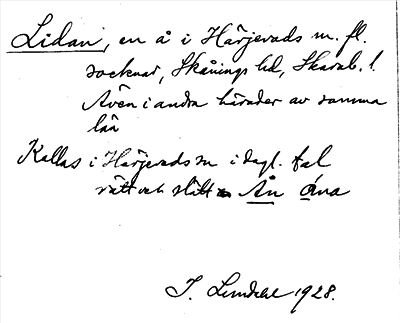 Lidan, en å i Härjevads m. fl.
socknar, Skånings hd, Skarab. l.
Även i andra härader av samma
län
Kallas i Härjevads sn i dagl. tal
rätt och slätt Ån åna
J. Lindahl 1928.